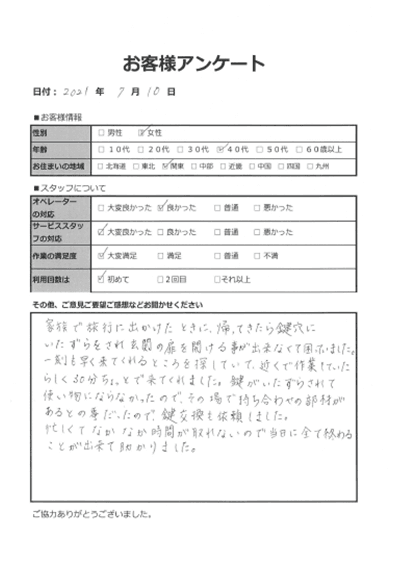 お客様アンケート
日付：2021 年 7 月 10 日
■お客様情報
性別 □男性 ☑女性
年齢 □10代 □20代 □30代 ☑40代 □50代 □60歳以上
お住まいの地域 □北海道 □東北 ☑関東 □中部 □近畿 □中国 □四国 □九州
■スタッフについて
オペレーターの対応 □大変良かった ☑良かった □普通 □悪かった
サービススタッフの対応 ☑大変良かった □良かった □普通 □悪かった
作業の満足度 ☑大変満足 □満足 □普通 □不満
利用回数は ☑初めて □2回目 □それ以上
その他、ご意見ご要望ご感想などお聞かせください
家族で旅行に出かけたときに、帰ってきたら鍵穴に
いたずらをされ玄関の扉を開ける事が出来なくて困っていました。
一刻も早く来てくれるところを探していて、近くで作業していた
らしく30分ちょっとで来てくれました。鍵がいたずらされて
使い物にならなかったので、その場で持ち合わせの部材が
あるとの事だったので、鍵交換も依頼しました。
忙しくてなかなか時間が取れないので当日に全て終わる
ことが出来て助かりました。
ご協力ありがとうございました。